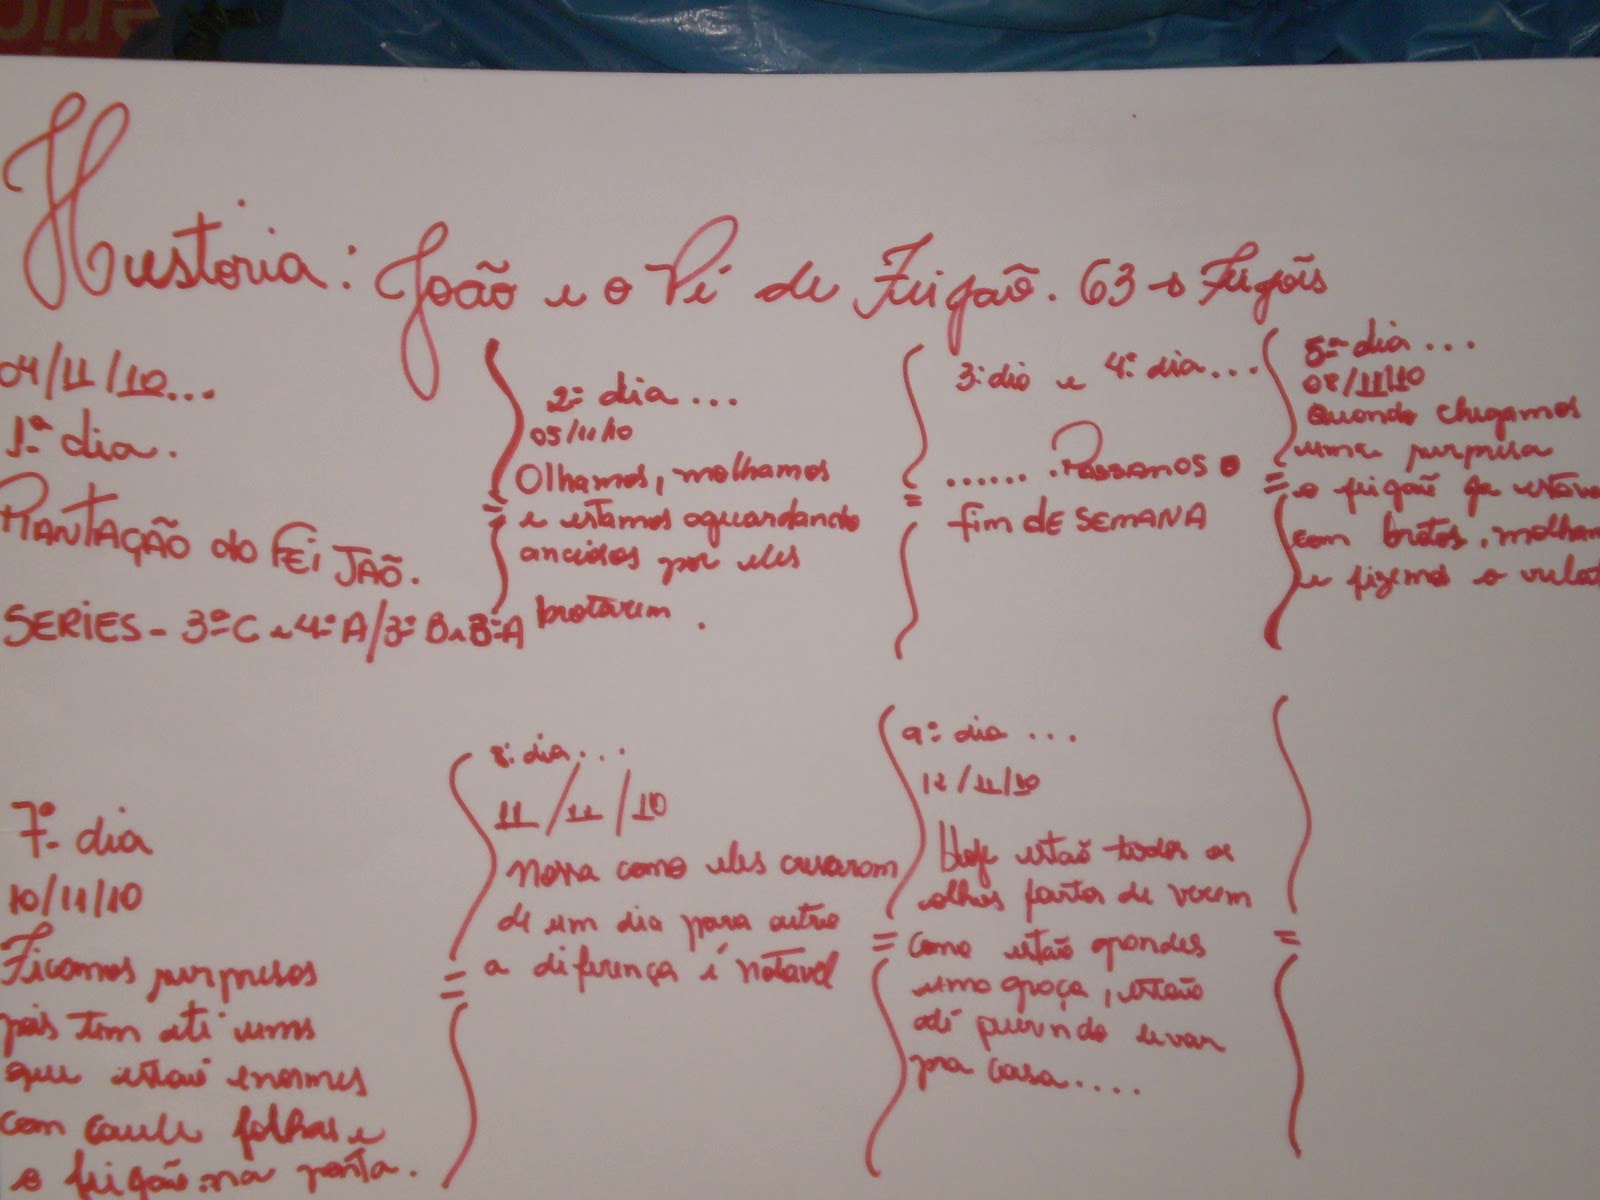 História: João e o Pé de Feijão. 63 → Feijões
04/11/10...
1º dia.
PlANTAÇÃO do FEiJÃO.
SERIES - 3ª C e 4ª A/3ª B e 3ª A
2º dia...
05/11/10
Olhamos, molhamos
e estamos aguardando
anciosos por eles
brotarem.
3º dia e 4º dia...
...... Passamos o
fim DE SEMANA
5º dia...
08/11/10
Quando chegamos
uma surpresa
o feijão ja estava
com brotos, molham
e fizemos o relat
7º dia
10/11/10
Ficamos surpresos
pois tem até uns
que estão enormes
com caule folhas e
o feijão na ponta.
8º dia...
11/11/10
Nossa como eles cresceram
de um dia para outro
a diferença é notavel
9º dia...
12/11/10
Hoje estão todos os
olhos fartos de verem
como estão grandes
uma graça, estão
até querendo levar
pra casa....